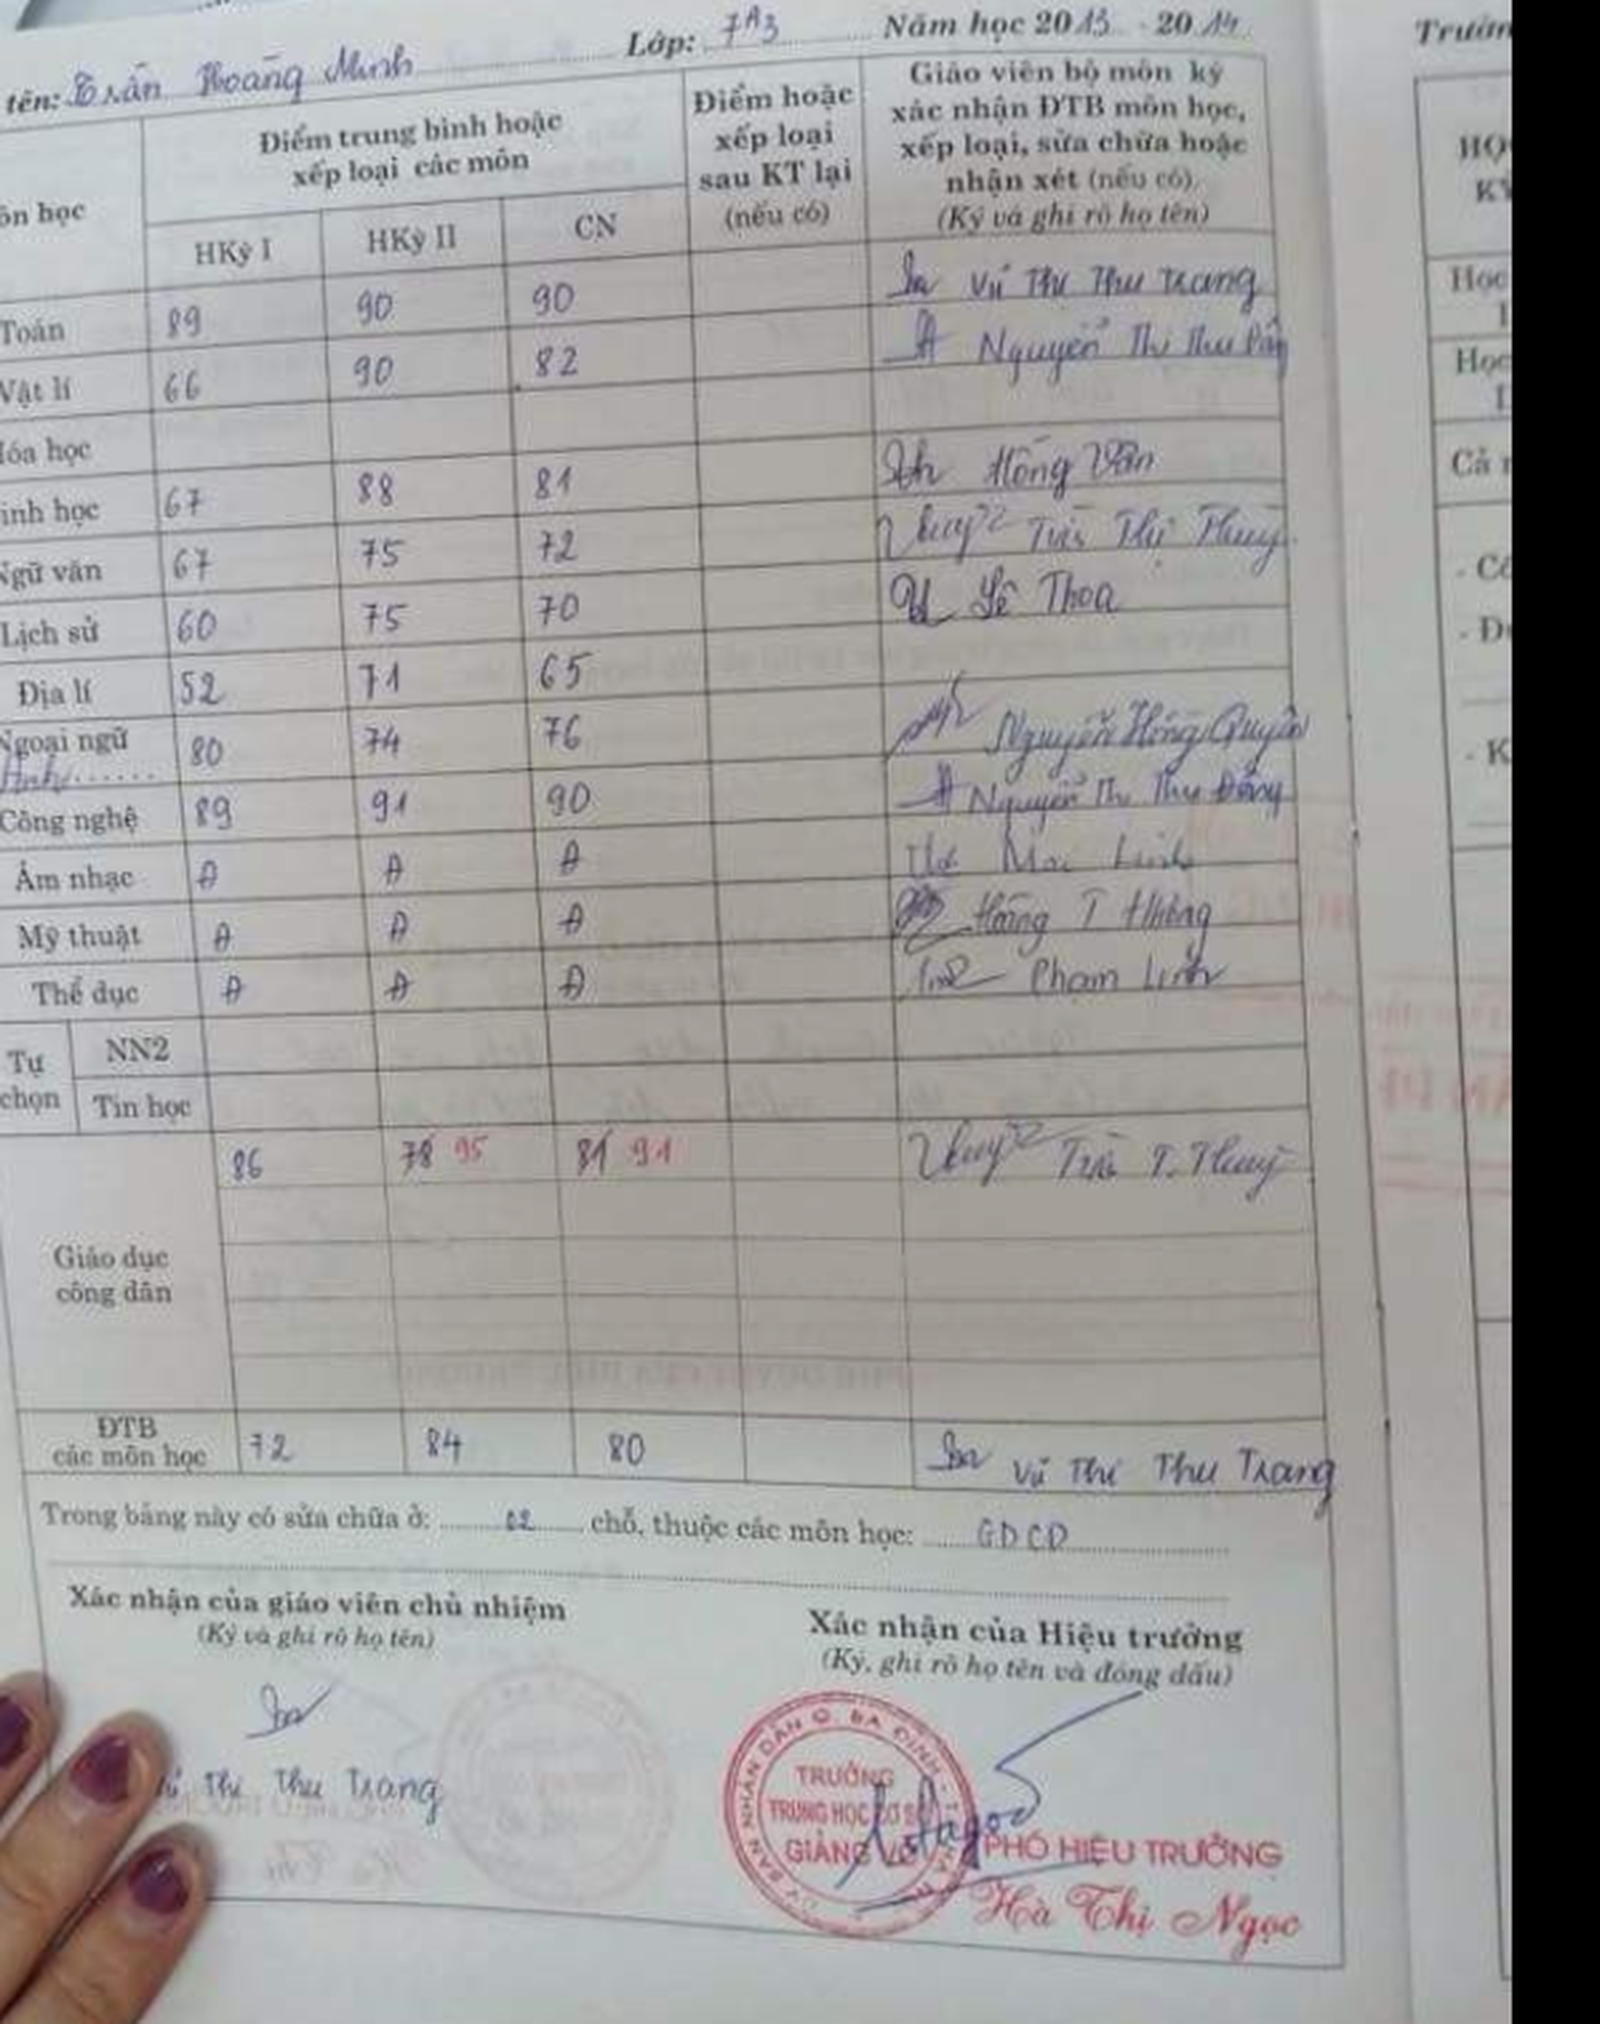 tên: Trần Hoàng Minh Lớp: 7A3 Năm học 2013 - 2014
ôn học
Điểm trung bình hoặc
xếp loại các môn
Điểm hoặc
xếp loại
sau KT lại
(nếu có)
Giáo viên bộ môn ký
xác nhận ĐTB môn học,
xếp loại, sửa chữa hoặc
nhận xét (nếu có)
(Ký và ghi rõ họ tên)
HKỳ I HKỳ II CN
Toán 89 90 90 Vũ Thị Thu Trang
Vật lí 66 90 82 Nguyễn Thị Thu
Hóa học
inh học 67 88 81 Hồng Vân
Ngữ văn 67 75 72 Trần Thị Thuỷ
Lịch sử 60 75 70 Lê Thoa
Địa lí 52 71 65
Ngoại ngữ 80 74 76 Nguyễn Hồng Quyên
Anh
Công nghệ 89 91 90 Nguyễn Thị Thu
Âm nhạc Đ Đ Đ Mai Linh
Mỹ thuật Đ Đ Đ
Thể dục Đ Đ Đ Phạm Linh
Tự
chọn
NN2
Tin học
Giáo dục
công dân
86 78 95 81 91 Trần T. Thuỷ
ĐTB
các môn học 72 84 80 Vũ Thị Thu Trang
Trong bảng này có sửa chữa ở: 02 chỗ, thuộc các môn học: GDCD
Xác nhận của giáo viên chủ nhiệm
(Ký và ghi rõ họ tên)
Thị Thu Trang
Xác nhận của Hiệu trưởng
(Ký, ghi rõ họ tên và đóng dấu)
BAN NHÂN DÂN Q. BA ĐÌNH
TRƯỜNG
TRUNG HỌC CƠ SỞ
GIẢNG VÕ
PHÓ HIỆU TRƯỞNG
Hà Thị Ngọc
Trườn
HỌ
KỲ
Học
Học
Cả
- K